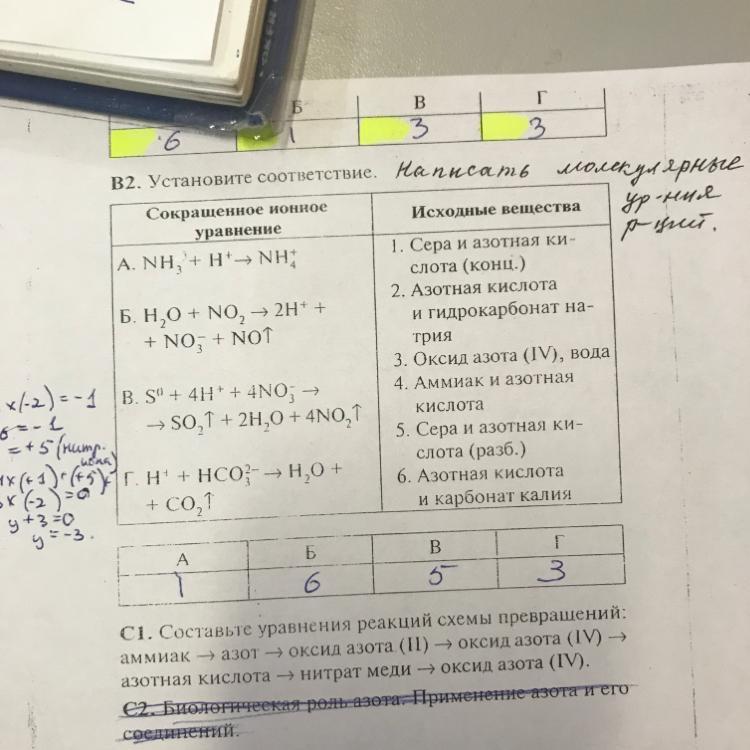 Б В Г
6 1 3 3
В2. Установите соответствие. Написать молекулярные
ур-ния
р-ций.
Сокращенное ионное
уравнение
А. NH₃ + H⁺ → NH₄⁺
Б. H₂O + NO₂ → 2H⁺ +
+ NO₃⁻ + NO↑
В. S⁰ + 4H⁺ + 4NO₃⁻ →
→ SO₂↑ + 2H₂O + 4NO₂↑
Г. H⁺ + HCO₃²⁻ → H₂O +
+ CO₂↑
Исходные вещества
1. Сера и азотная ки-
слота (конц.)
2. Азотная кислота
и гидрокарбонат на-
трия
3. Оксид азота (IV), вода
4. Аммиак и азотная
кислота
5. Сера и азотная ки-
слота (разб.)
6. Азотная кислота
и карбонат калия
x(-2) = -1
= -1
= +5 (нитр.
x(+1) + (+5)
x(-2) = 0
y + 3 = 0
y = -3.
А Б В Г
1 6 5 3
С1. Составьте уравнения реакций схемы превращений:
аммиак → азот → оксид азота (II) → оксид азота (IV) →
азотная кислота → нитрат меди → оксид азота (IV).
С2. Биологическая роль азота. Применение азота и его
соединений.